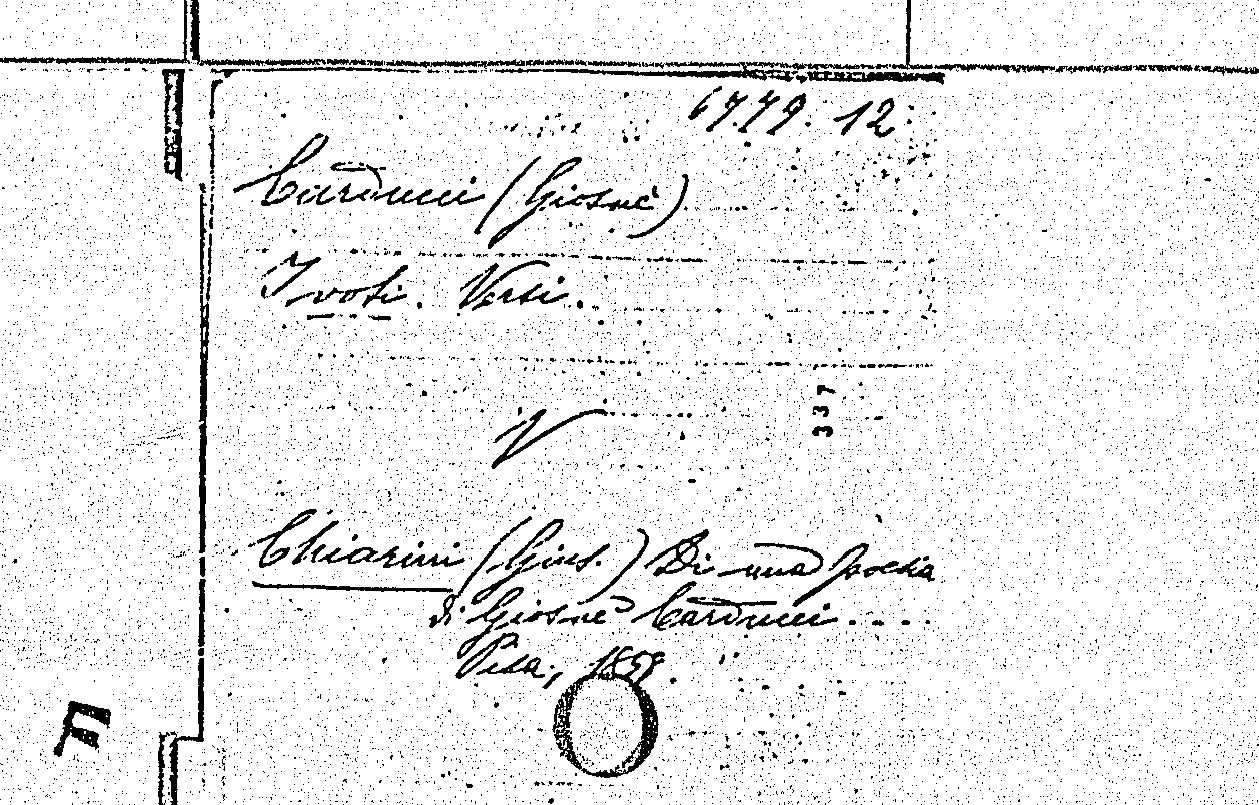 6779. 12.
Carducci (Giosuè)
I voti. Versi.
337
V
Chiarini (Gius.) Di una poesia
di Giosuè Carducci . . . .
Pisa, 1859.
F